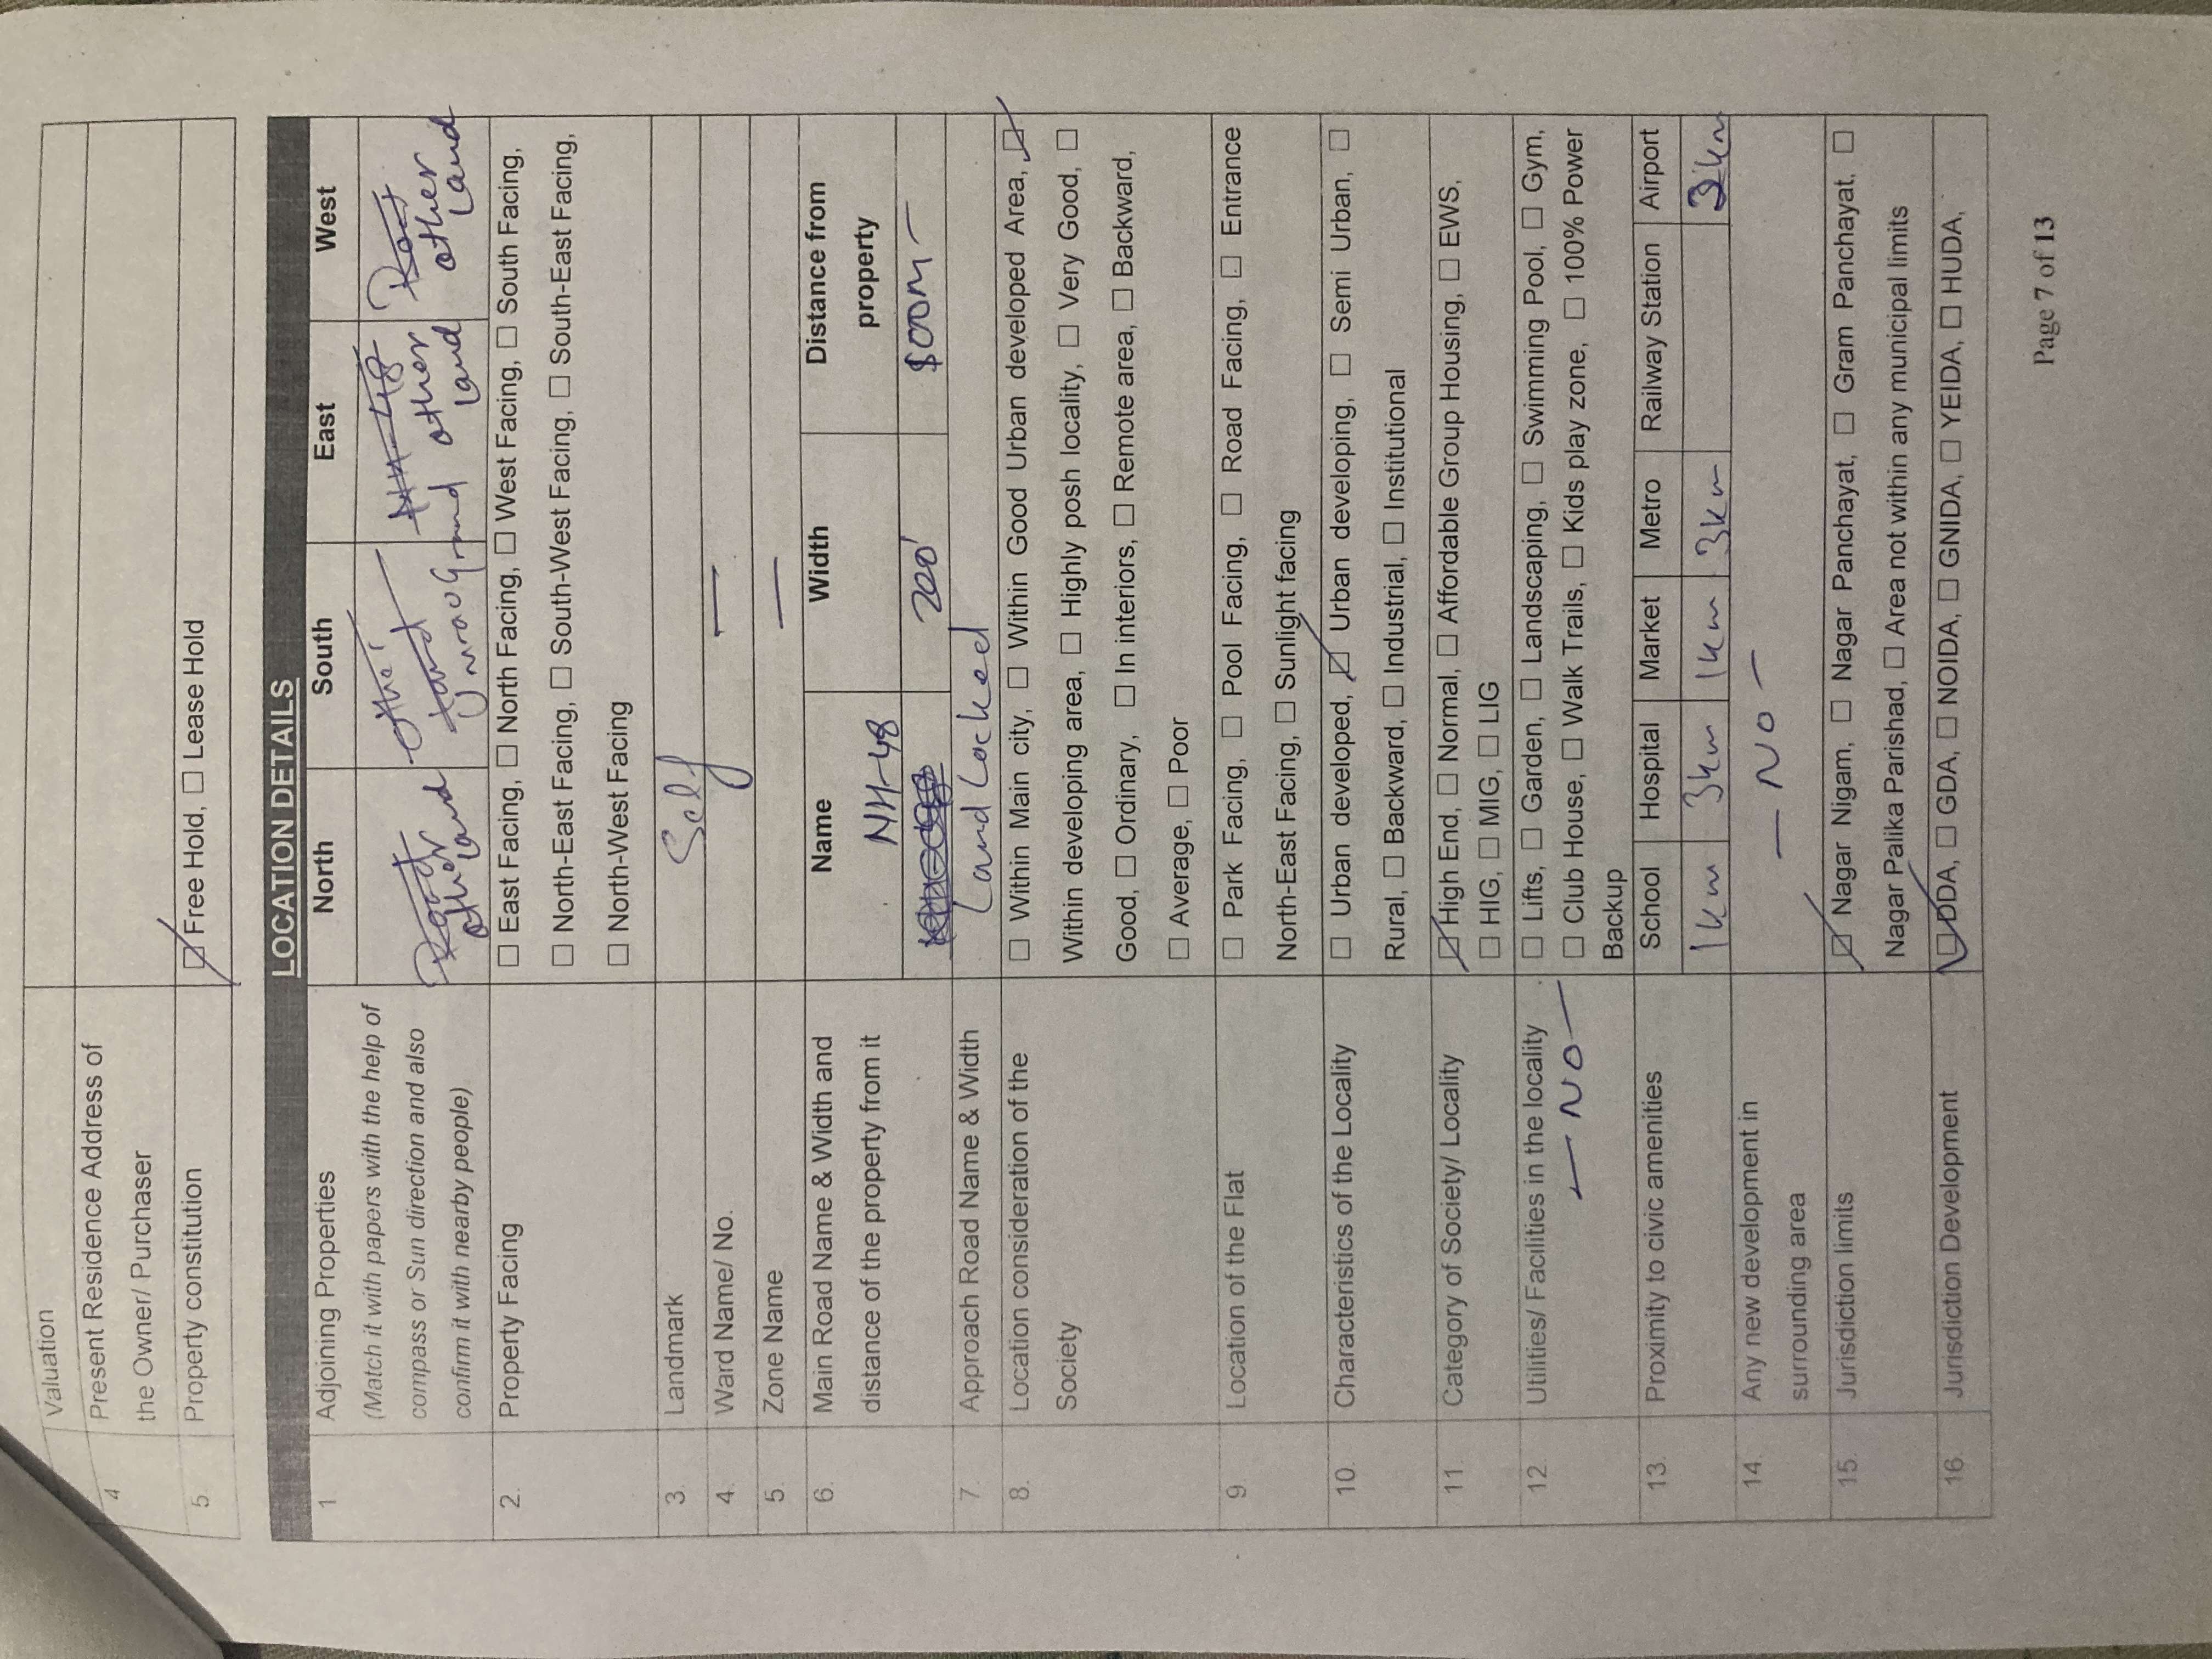 Valuation
4 Present Residence Address of
the Owner/ Purchaser
5 Property constitution ☑ Free Hold, ☐ Lease Hold
LOCATION DETAILS
1 Adjoining Properties North South East West
(Match it with papers with the help of
compass or Sun direction and also
confirm it with nearby people)
Road other Land
other Land Umrao Grand
NH-48 other Land
Road other Land
2. Property Facing ☐ East Facing, ☐ North Facing, ☐ West Facing, ☐ South Facing,
☐ North-East Facing, ☐ South-West Facing, ☐ South-East Facing,
☐ North-West Facing
3. Landmark Self
4. Ward Name/ No. —
5. Zone Name —
6. Main Road Name & Width and Name Width Distance from
distance of the property from it property
NH-48 200' 00m –
7. Approach Road Name & Width Land Locked
8. Location consideration of the ☐ Within Main city, ☐ Within Good Urban developed Area, ☑
Society Within developing area, ☐ Highly posh locality, ☐ Very Good, ☐
Good, ☐ Ordinary, ☐ In interiors, ☐ Remote area, ☐ Backward,
☐ Average, ☐ Poor
9. Location of the Flat ☐ Park Facing, ☐ Pool Facing, ☐ Road Facing, ☐ Entrance
North-East Facing, ☐ Sunlight facing
10. Characteristics of the Locality ☐ Urban developed, ☑ Urban developing, ☐ Semi Urban, ☐
Rural, ☐ Backward, ☐ Industrial, ☐ Institutional
11. Category of Society/ Locality ☑ High End, ☐ Normal, ☐ Affordable Group Housing, ☐ EWS,
☐ HIG, ☐ MIG, ☐ LIG
12. Utilities/ Facilities in the locality ☐ Lifts, ☐ Garden, ☐ Landscaping, ☐ Swimming Pool, ☐ Gym,
— NO — ☐ Club House, ☐ Walk Trails, ☐ Kids play zone, ☐ 100% Power
Backup
13. Proximity to civic amenities School Hospital Market Metro Railway Station Airport
1km 3km 1km 3km km
14. Any new development in — NO —
surrounding area
15. Jurisdiction limits ☑ Nagar Nigam, ☐ Nagar Panchayat, ☐ Gram Panchayat, ☐
Nagar Palika Parishad, ☐ Area not within any municipal limits
16. Jurisdiction Development ☑ DDA, ☐ GDA, ☐ NOIDA, ☐ GNIDA, ☐ YEIDA, ☐ HUDA,
Page 7 of 13